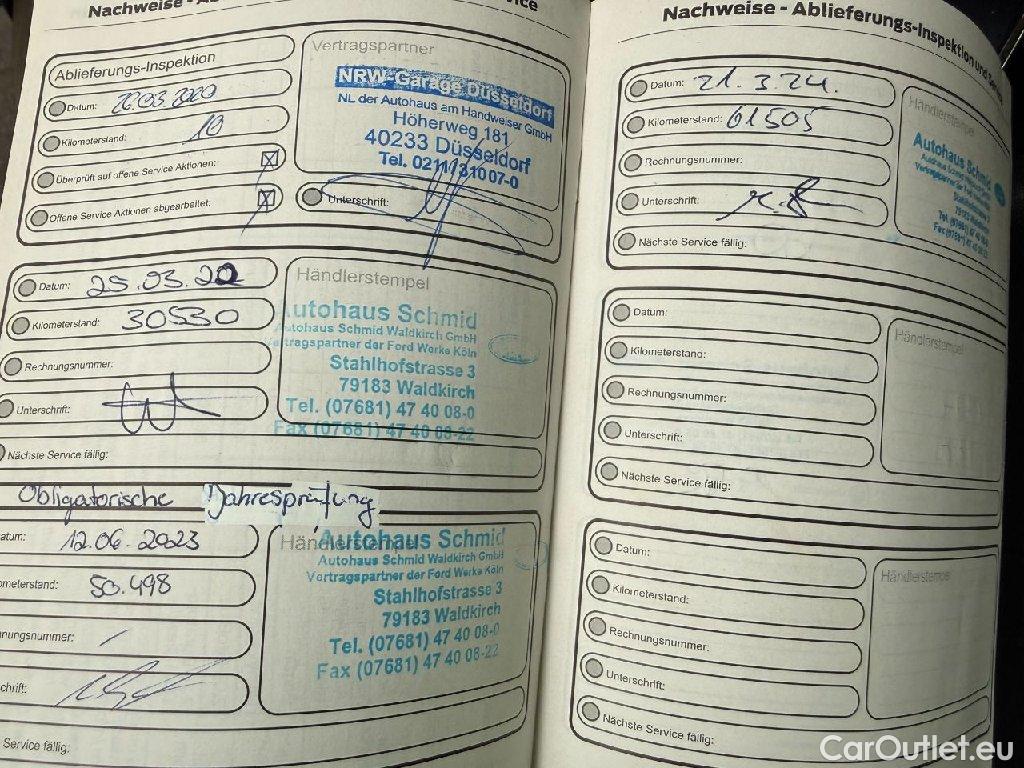 Nachweise - Ab
ce
Ablieferungs-Inspektion
Datum: 20.03.2020
Kilometerstand: 10
Überprüft auf offene Service Aktionen:
Offene Service Aktionen abgearbeitet:
Vertragspartner
NRW-Garage Düsseldorf
NL der Autohaus am Handweiser GmbH
Höherweg 181
40233 Düsseldorf
Tel. 0211/31007-0
Unterschrift:
Datum: 25.03.22
Kilometerstand: 30530
Rechnungsnummer:
Unterschrift:
Nächste Service fällig:
Händlerstempel
Autohaus Schmid
Autohaus Schmid Waldkirch GmbH
Vertragspartner der Ford Werke Köln
Stahlhofstrasse 3
79183 Waldkirch
Tel. (07681) 47 40 08-0
Fax (07681) 47 40 08-22
Obligatorische Jahresprüfung
atum: 12.06.2023
ometerstand: 50.498
hnungsnummer: -
chrift:
Service fällig:
Händlerstempel
Autohaus Schmid
Autohaus Schmid Waldkirch GmbH
Vertragspartner der Ford Werke Köln
Stahlhofstrasse 3
79183 Waldkirch
Tel. (07681) 47 40 08-0
Fax (07681) 47 40 08-22
Nachweise - Ablieferungs-Inspektion und
Datum: 21.3.24.
Kilometerstand: 61505
Rechnungsnummer:
Unterschrift:
Nächste Service fällig:
Händlerstempel
Autohaus Schmid
Autohaus Schmid
Vertragspartner der
Stahlhofstrasse
79183
Tel. (07681) 47
Fax (07681) 47
Datum:
Kilometerstand:
Rechnungsnummer:
Unterschrift:
Nächste Service fällig:
Händlerstempel
Datum:
Kilometerstand:
Rechnungsnummer:
Unterschrift:
Nächste Service fällig:
Händlerstempel
CarOutlet.eu